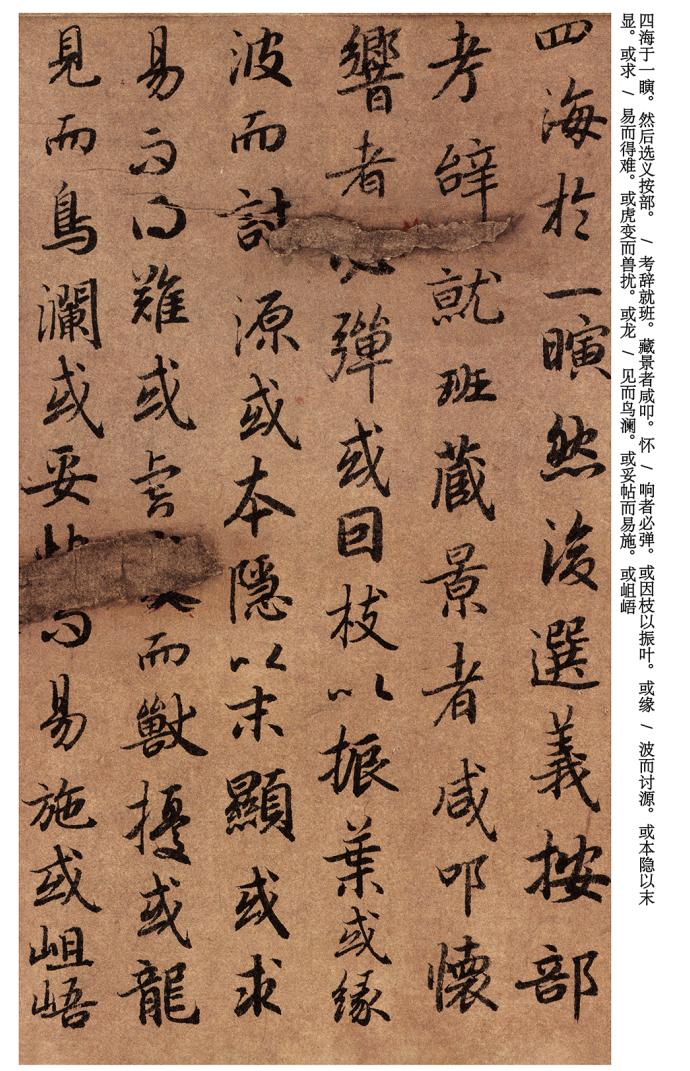 四海于一瞚。然后选义按部。 / 考辞就班。藏景者咸叩。怀 / 响者必弹。或因枝以振叶。或缘 / 波而讨源。或本隐以末
显。或求 / 易而得难。或虎变而兽扰。或龙 / 见而鸟澜。或妥帖而易施。或岨峿
四海於一瞚然後選義按部
考辭就班藏景者咸叩懷
響者必彈或因枝以振葉或緣
波而討源或本隱以末顯或求
易而得難或虎變而獸擾或龍
見而鳥瀾或妥帖而易施或岨峿